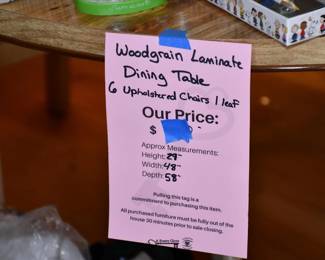 Woodgrain Laminate
Dining Table
6 Upholstered Chairs 1 leaf
Our Price:
$
Approx Measurements:
Height: 29"
Width: 48"
Depth: 58"
Pulling this tag is a
commitment to purchasing this item.
All purchased furniture must be fully out of the
house 30 minutes prior to sale closing.